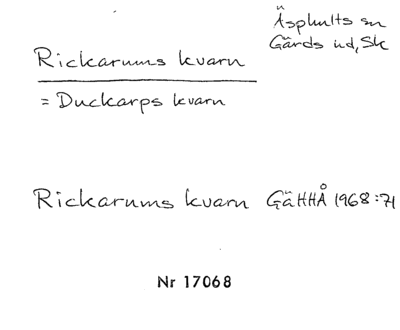 Äsphults sn
Gärds hd, Sk
Rickarums kvarn
= Duckarps kvarn
Rickarums kvarn GäHHÅ 1968:71
Nr 17068